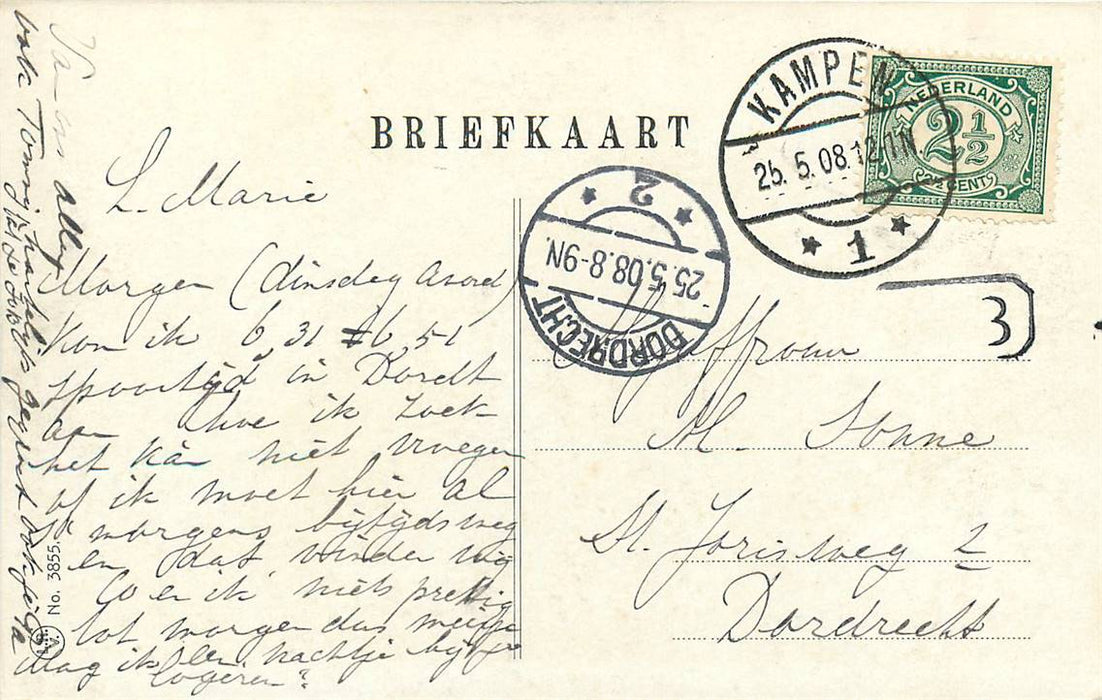 BRIEFKAART
KAMPEN
25.5.08.12.1N.
1
NEDERLAND
2 1/2
CENT
2
25.5.08.8-9N.
DORDRECHT
3
L. Marie
Morgen (dinsdag avond)
kom ik 6,31 6,51
spoortijd in Dordt
aan hoe ik zoek
het kan niet vroeger
of ik moet hier al
's morgens bijtijds weg
en dat vinden wij
niets prettig
tot morgen dus meisje
Mag ik een nachtje bij je
logeren
Van ons allen
hartelijk gegroet
Juffrouw
M. Sonne
St. Jorisweg 2
Dordrecht
No. 3855.